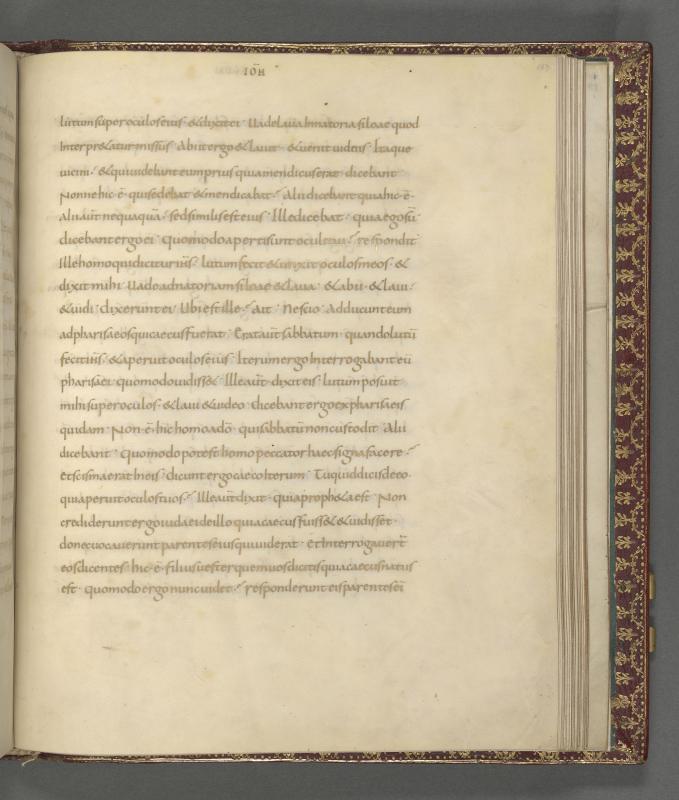 IOH
lutum super oculos eius · & dixit ei · Uade laua In natoria siloae quod
Interpr&atur missus · Abiit ergo & lauit · & uenit uidens · Itaque
uicini · & qui uidebant eum prius quia mendicus erat · dicebant
Nonne hic · ē · qui sedebat & mendicabat · Alii dicebant quia hic · ē ·
alii aūt nequaquā · sed similis est eius · Ille dicebat · quia ego sū
dicebant ergo ei · Quomodo aperti sunt oculi tui · respondit
Ille homo qui dicitur ihs · lutum fecit & unxit oculos meos · &
dixit mihi · Uade ad natoriam siloae & laua · & abii · & laui ·
& uidi · dixerunt ei · Ubi est ille · ait · Nescio · Adducunt eum
ad pharisaeos qui caecus fuerat · Erat aūt sabbatum · quando lutū
fecit ihs · & aperuit oculos eius · Iterum ergo Interrogabant eū
pharisaei · quomodo uidiss& · Ille aūt dixit eis · lutum posuit
mihi super oculos · & laui & uideo · dicebant ergo ex pharisaeis
quidam · Non · ē · hic homo a dō · qui sabbatū non custodit · Alii
dicebant · Quomodo potest homo peccator haec signa facere ·
et scisma erat In eis · dicunt ergo caeco Iterum · Tu quid dicis de eo ·
qui aperuit oculos tuos · Ille aūt dixit · quia proph&a est · Non
crediderunt ergo iudaei de illo quia caecus fuiss& & uidisset ·
donec uocauerunt parentes eius qui uiderat · Et Interrogauert̄
eos dicentes · hic · ē · filius uester quem uos dicitis quia caecus natus
est · quomodo ergo nunc uidet · responderunt eis parentes ei